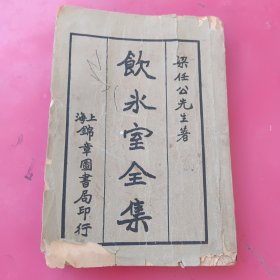 梁任公先生著
飲氷室全集
上海錦章圖書局印行